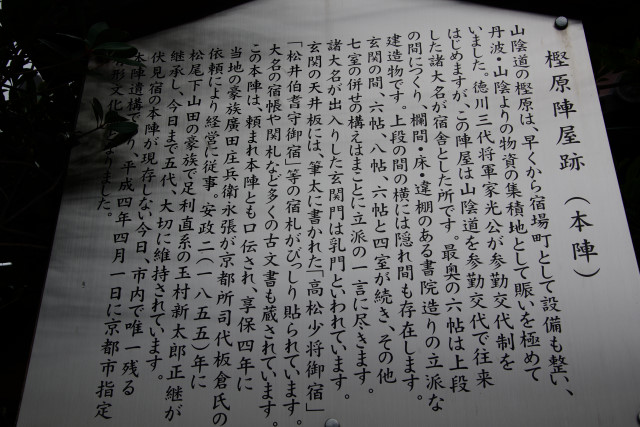 樫原陣屋跡（本陣）
山陰道の樫原は、早くから宿場町として設備も整い、
丹波・山陰よりの物資の集積地として賑いを極めて
いました。徳川三代将軍家光公が参勤交代制を
はじめますが、この陣屋は山陰道を参勤交代で往来
した諸大名が宿舎とした所です。最奥の六帖は上段
の間につくり、欄間・床・違棚のある書院造りの立派な
建造物です。上段の間の横には隠れ間も存在します。
玄関の間、六帖、八帖、六帖と四室が続き、その他
七室の併せの構えはまことに立派の一言に尽きます。
諸大名が出入りした玄関門は乳門といわれています。
玄関の天井板には、筆太に書かれた「高松少将御宿」
「松井伯耆守御宿」等の宿札がびっしり貼られています。
大名の宿帳や関札など多くの古文書も蔵されています。
この本陣は、頼まれ本陣とも口伝され、享保四年に
当地の豪族廣田庄兵衛永張が京都所司代板倉氏の
依頼により経営に従事。安政二（一八五五）年に
松尾下山田の豪族で足利直系の玉村新太郎正継が
継承し、今日まで五代、大切に維持されています。
伏見宿の本陣が現存しない今日、市内で唯一残る
本陣遺構であり、平成四年四月一日に京都市指定
有形文化財となりました。